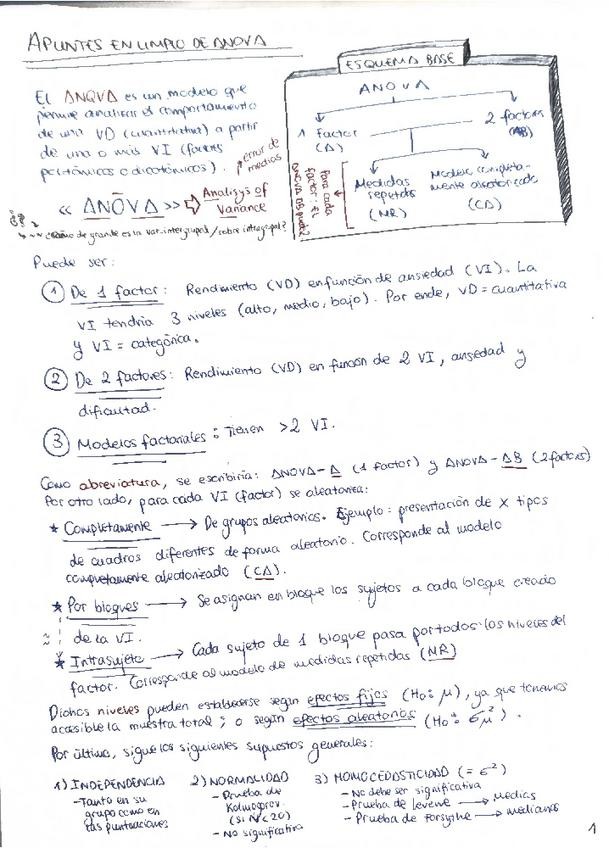 APUNTES EN LIMPIO DE ANOVA
ESQUEMA BASE
ANOVA
1 Factor
(A)
2 factores
(AB)
Medidas
repetidas
(MR)
Modelo completa-
mente aleatorizado
(CA)
Para cada
factor: el
ANOVA es
El ANOVA es un modelo que
permite analizar el comportamiento
de una VD (cuantitativa) a partir
de una o más VI (factores
politómicos o dicotómicos).
error de
medios
<< ANOVA >> ⇨ Analisys of
Variance
¿Cómo de grande es la var. intergrupal / sobre intragrupal?
Puede ser:
1 De 1 factor: Rendimiento (VD) en función de ansiedad (VI). La
VI tendría 3 niveles (alto, medio, bajo). Por ende, VD = cuantitativa
y VI = categórica.
2 De 2 factores: Rendimiento (VD) en función de 2 VI, ansiedad y
dificultad.
3 Modelos factoriales: Tienen >2 VI.
Como abreviatura, se escribiría: ANOVA-A (1 factor) y ANOVA-AB (2 factores)
Por otro lado, para cada VI (factor) se aleatoriza:
* Completamente → De grupos aleatorios. Ejemplo: presentación de X tipos
de cuadros diferentes de forma aleatorio. Corresponde al modelo
completamente aleatorizado (CA).
* Por bloques → Se asignan en bloque los sujetos a cada bloque creado
de la VI.
* Intrasujeto → Cada sujeto de 1 bloque pasa por todos los niveles del
factor. Corresponde al modelo de medidas repetidas (MR)
Dichos niveles pueden establecerse según efectos fijos (Ho: μ), ya que tenemos
accesible la muestra total; o según efectos aleatorios (Ho: σ²μ).
Por último, sigue los siguientes supuestos generales:
1) INDEPENDENCIA 2) NORMALIDAD 3) HOMOCEDASTICIDAD (= σ²)
- Tanto en su - Prueba de - No debe ser significativa
grupo como en Kolmogorov. - Prueba de levene → medias
las puntuaciones (si N<20) - Prueba de forsythe → medianas
- No significativa
1